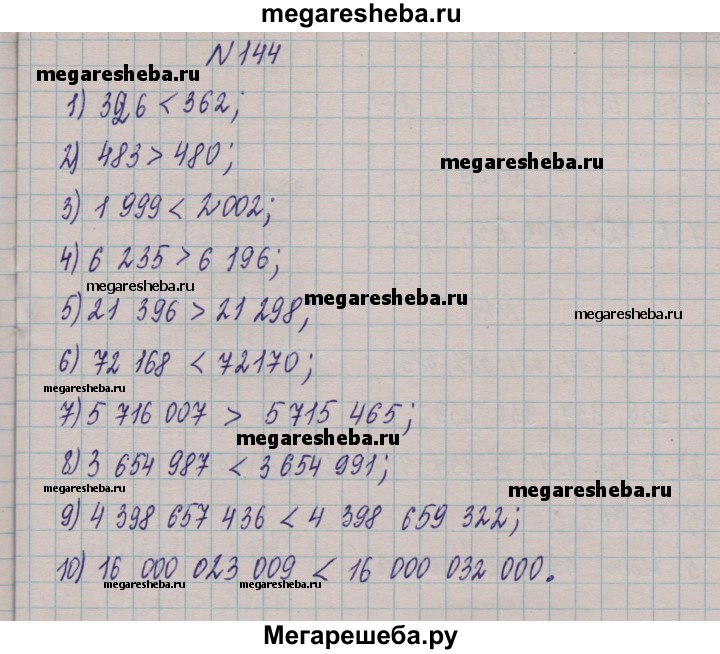 megaresheba.ru
N 144
megaresheba.ru
1) 326 < 362;
2) 483 > 480;
megaresheba.ru
3) 1 999 < 2 002;
4) 6 235 > 6 196;
megaresheba.ru
megaresheba.ru
5) 21 396 > 21 298;
megaresheba.ru
6) 72 168 < 72170;
megaresheba.ru
7) 5 716 007 > 5 715 465;
megaresheba.ru
8) 3 654 987 < 3 654 991;
megaresheba.ru
megaresheba.ru
9) 4 398 657 436 < 4 398 659 322;
10) 16 000 023 009 < 16 000 032 000.
megaresheba.ru
megaresheba.ru
Мегарешеба.ру